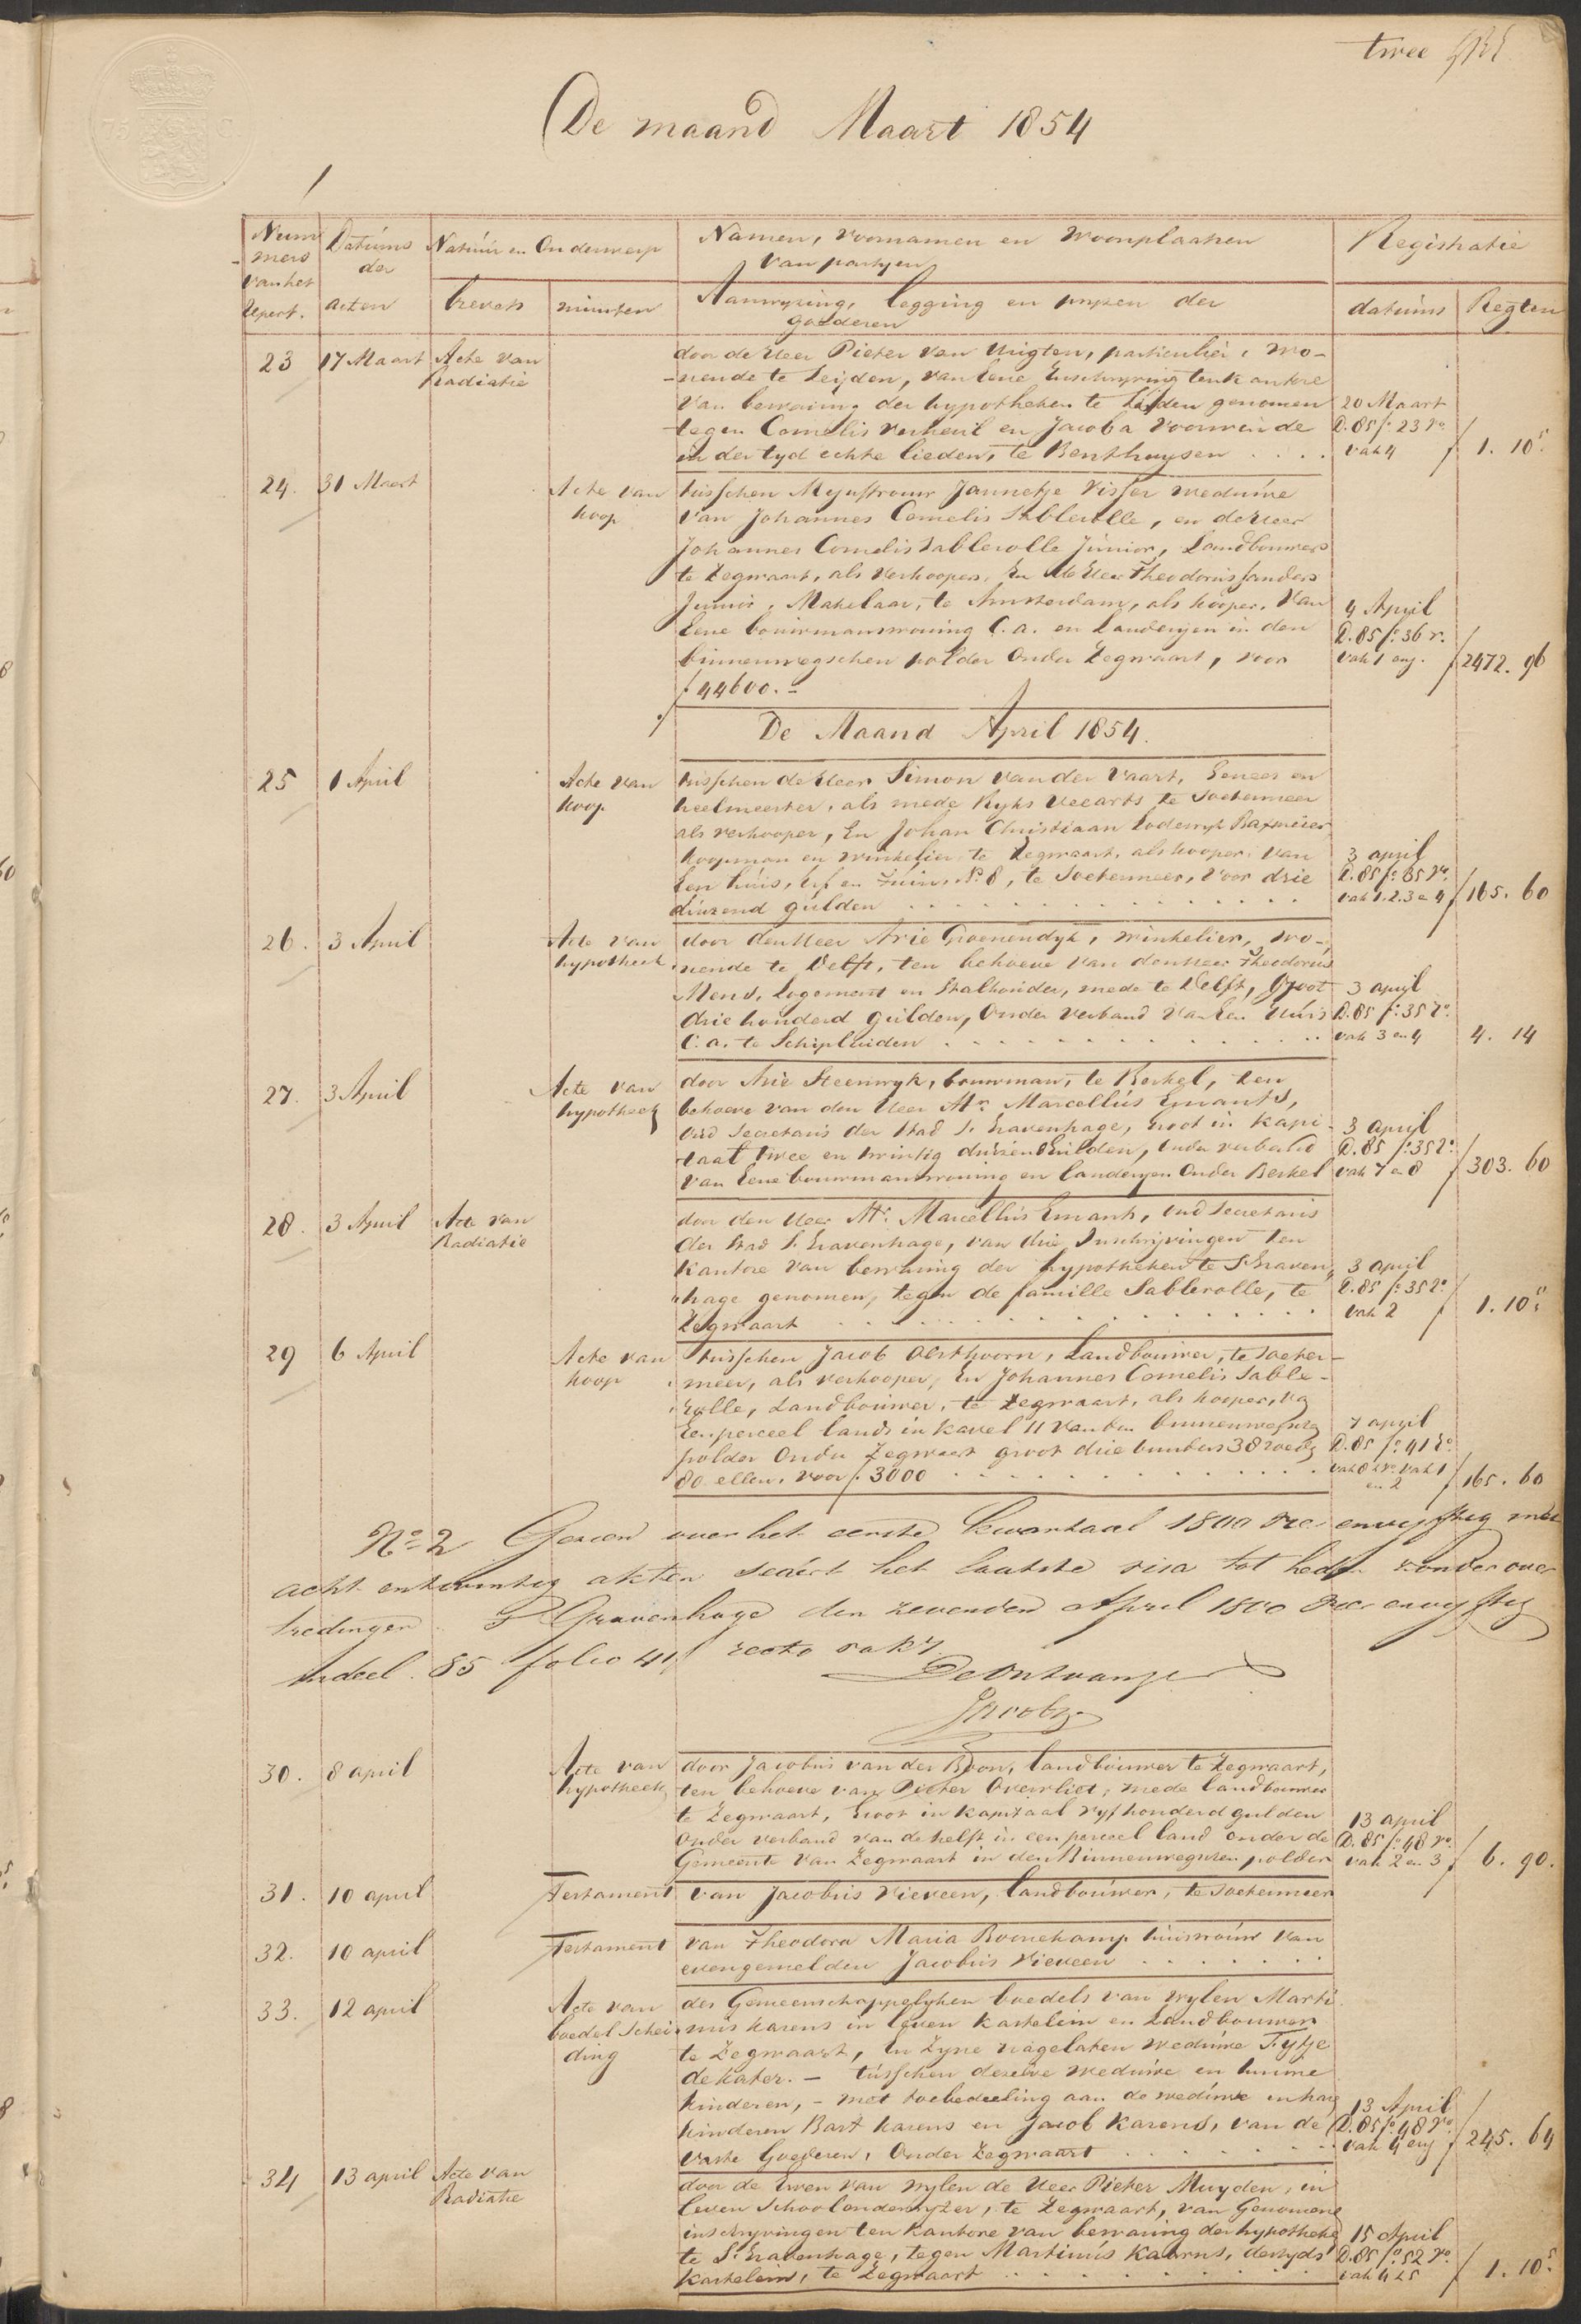 twee
De maand Maart 1854
Num
mers
van het
Repert.
Datums
der
acten
Natuur en Onderwerp
brevets
minuten
Namen, voornamen en woonplaatsen
van partyen
Aanwyzing, legging en pryzen der
goederen
Registratie
datums
Regten
23 17 Maart Acte van
Radiatie
door de Heer Pieter van , particulier, wo-
-nende te Leijden, van eene Inschryving ten kantore
van bewaring der hypotheken te Leiden genomen
tegen Cornelis Verheul en Jacoba Voorwinde
in der tyd echte lieden, te Benthuysen . . . .
20 Maart
D. 85 f° 23 v°
vak 4 f 1. 10⁵
24. 31 Maart Acte van
koop
tusschen Mejuffrouw Jannetje Visser weduwe
van Johannes Cornelis Sablerolle, en de Heer
Johannes Cornelis Sablerolle Junior, Landbouwers
te Zegwaart, als verkoopers, En de Heer Theodorus Sanders
Junior, Makelaar, te Amsterdam, als kooper, van
Eene bouwmanswoning C.a. en Landeryen in den
binnenwegschen polder Onder Zegwaart, voor
f 44600.-
4 April
D. 85 f° 36 r.
vak 1 env. f 2472. 96
De Maand April 1854.
25 1 April Acte van
koop
tusschen de Heer Simon van der Vaart, Genees en
heelmeester, als mede Ryks Veearts te Soetermeer
als verkooper, En Johan Christiaan Lodewyk Baxmeier
koopman en winkelier te Zegwaart, als kooper, van
Een huis, Erf en Tuin, N° 8, te Soetermeer, voor drie
duizend gulden
3 april
D. 85 f° 35 r°
vak 1. 2. 3 en 4 f 165. 60
26. 3 April Acte van
hypotheek
door den Heer Arie Groenendyk, winkelier, wo-
nende te Delft, ten behoeve van den Heer Theodorus
Mens, Logement en Stalhouder, mede te Delft, Groot
driehonderd gulden, Onder verband van Een Huis
C.a. te Schipluiden
3 april
D. 85 f° 35 v°
vak 3 en 4 4. 14
27. 3 April Acte van
hypotheek
door Arie Steenwyk, bouwman, te Berkel, ten
behoeve van den Heer Mr Marcellus Emants,
Oud Secretaris der Stad S. Gravenhage, groot in kapi-
taal twee en twintig duizend Gulden, Onder verband
van Eene bouwmanswoning en landeryen Onder Berkel
3 april
D. 85 f° 35 v°
vak 7 en 8 f 303. 60
28. 3 April Acte van
Radiatie
door den Heer Mr Marcellus Emants, Oud Secretaris
der Stad S. Gravenhage, van drie Inschrijvingen ten
Kantore van bewaring der hypotheken te S. Graven
hage genomen, tegen de famille Sablerolle, te
Zegwaart
3 april
D. 85 f° 35 v°
vak 2 f 1. 10⁵
29 6 April Acte van
koop
tusschen Jacob Olsthoorn, Landbouwer, te Soeter-
meer, als verkooper, En Johannes Cornelis Sable-
rolle, Landbouwer, te Zegwaart, als kooper, van
Een perceel lands in kavel 11 van den binnenwegsche
polder Onder Zegwaart groot drie bunders 38 roeden
80 ellen, voor f 3000
7 april
D. 85 f° 41 v°
vak 8 vak 1
en 2 f 165. 60
N° 2 Gezien over het eerste kwartaal 1800 vier en vyftig met
acht en twintig akten sedert het laatste visa tot heden zonder over
tredingen S Gravenhage den zevenden April 1800 vier en vyftig
in deel 85 folio 41 recto vak 7
De Ontvanger
30. 8 april Acte van
hypotheek
door Jacobus van der Boon, landbouwer te Zegwaart,
ten behoeve van Pieter Overvliet, mede landbouwer
te Zegwaart, Groot in kapitaal vyfhonderd gulden
Onder verband van de helft in een perceel land onder de
Gemeente van Zegwaart in den Binnenwegschen polder
13 april
D. 85 f° 48 r°
vak 2 en 3 f 6. 90.
31. 10 april Testament van Jacobus Vieveen, landbouwer, te Soetermeer
32. 10 april Testament van Theodora Maria Boonekamp huisvrouw van
evengemelden Jacobus Vieveen
33. 12 april Acte van
boedel Schei
ding
des Gemeenschappelyken boedels van wylen Marti
nus Karens in leven kastelein en Landbouwer
te Zegwaart, En Zyne nagelaten weduwe Fytje
de Kater. - tusschen dezelve weduwe en hunne
kinderen, - met toebedeeling aan de weduwe en hare
kinderen Bart Karens en Jacob Karens, van de
vaste Goederen, Onder Zegwaart
13 April
D. 85 f° 48 v°
vak 4 env f 245. 64
34 13 april Acte van
Radiatie
door de Erven van wylen de Heer Pieter Muyden, in
leven Schoolonderwyzer, te Zegwaart, van Genomene
inschryvingen ten kantore van bewaring der hypotheken
te S. Gravenhage, tegen Martinus Kaarns, destyds
kastelein, te Zegwaart
15 April
D. 85 f° 52 v°
vak 4 f 1. 10⁵